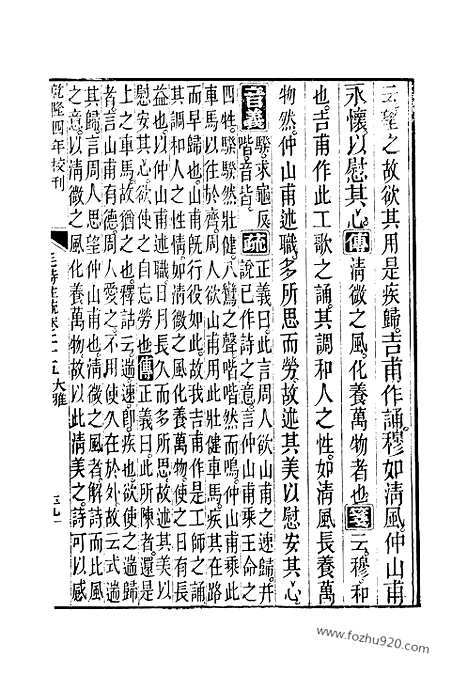 云望之故欲其用是疾歸吉甫作誦穆如清風仲山甫
永懷以慰其心傳清微之風化養萬物者也箋云穆和
也吉甫作此工歌之誦其調和人之性如清風長養萬
物然仲山甫述職多所思而勞故述其美以慰安其心
音義騤求龜反
喈音皆疏正義曰此言周人欲山甫之速歸并
說已作詩之意言仲山甫乘王命之
四牡騤騤然壯健八鸞之聲喈喈然而鳴仲山甫乘此
車馬以往於齊周人欲山甫用此壯健車馬疾其在路
而早歸也山甫旣行役如此故我吉甫作是工師之誦
其調和人之性情如清微之風化養萬物使之日有長
益也以仲山甫述職日月長久而多所思故述其美以
慰安其心欲使之自忘勞也傳正義曰此所陳者還是
上之車馬故猶之也釋詁云遄速卽疾也欲使之遄歸
者言山甫有德周人愛之不用使久在於外故云式遄
其歸言周人思望仲山甫也清微之風者解詩而比風
之意以清微之風化養萬物故以比清美之詩可以感
乾隆四年校刊
毛詩注疏卷二十五 大雅
www.fozhu920.com